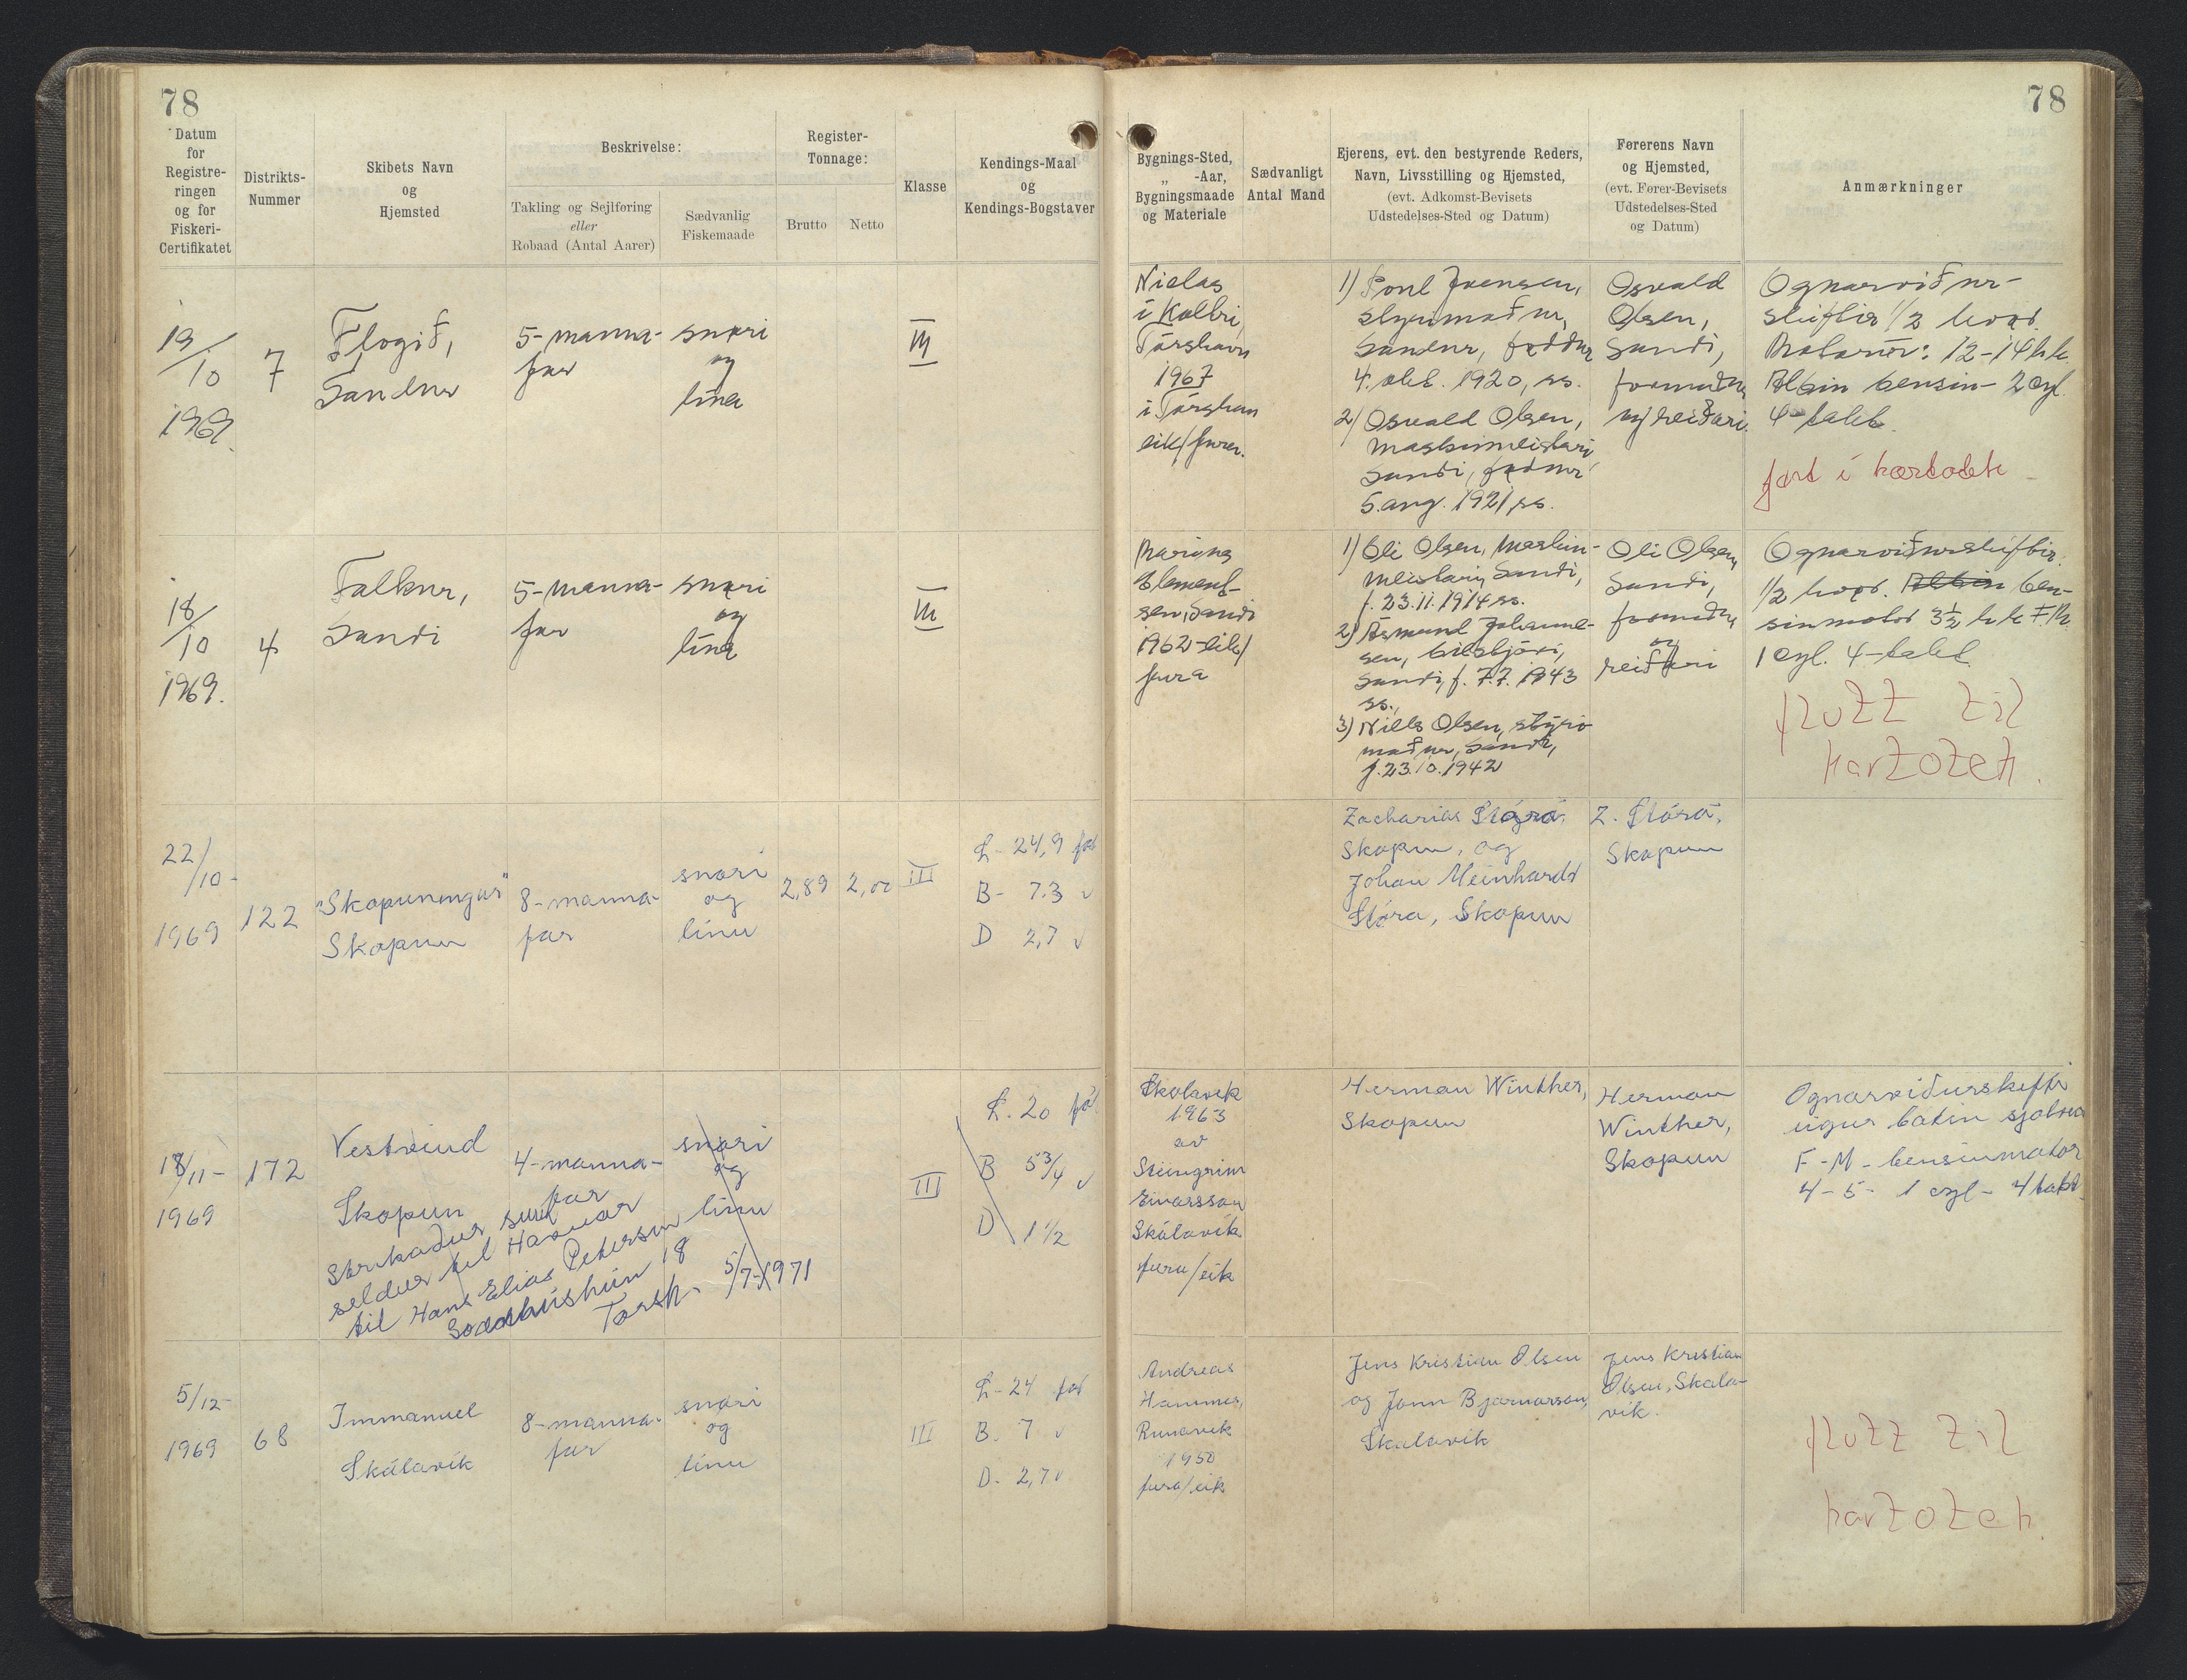 78
78
Datum
for
Registre-
ringen
og for
Fiskeri-
Certifikatet
Distrikts-
Nummer
Skibets Navn
og
Hjemsted
Beskrivelse:
Takling og Sejlføring
eller
Robaad (Antal Aarer)
Sædvanlig
Fiskemaade
Register-
Tonnage:
Brutto
Netto
Klasse
Kendings-Maal
og
Kendings-Bogstaver
Bygnings-Sted,
„ -Aar,
Bygningsmaade
og Materiale
Sædvanligt
Antal Mand
Ejerens, evt. den bestyrende Reders,
Navn, Livsstilling og Hjemsted,
(evt. Adkomst-Bevisets
Udstedelses-Sted og Datum)
Førerens Navn
og Hjemsted,
(evt. Fører-Bevisets
Udstedelses-Sted
og Datum)
Anmærkninger
13/10
1969.
7
Flogið,
Sandur
5-manna-
far
snøri
og
lína
III
Nielas
í Kálbri
Tórshavn
1967
í Tórshavn
eik/fura.
1) Poul Joensen,
Sandur, føddur
4. okt. 1920, ss.
2) Osvald Olsen,
maskinmeistari
Sandi, føddur
5. aug. 1921 ss.
Osvald
Olsen,
Sandi,
formaður
og reiðari.
Ognarviður-
skiftir 1/2 hvør.
Motorur: 12-14 hk.
Albin bensin- 2 cyl.
4-takt.
ført í kartotek
18/10
1969.
4
Falkur,
Sandi
5-manna-
far
snøri
og
lína
III
Marius
Clement-
sen, Sandi
1962-eik/
fura
1) Oli Olsen, maskin-
meistari, Sandi,
f. 23.11.1914 ss.
2) Ásmund Johanne-
sen, bilstjóri,
Sandi, f. 7.7.1943
ss.,
3) Niells Olsen, stýri-
maður, Sandi,
f. 23.10.1942
Oli Olsen,
Sandi,
formaður
og
reiðari
Ognarviðurskiftir.
1/2 hvør. Albin ben-
sinmotor 3½ hk F.M.
1 cyl. 4-takt.
flutt til
kartotek.
22/10-
1969
122
"Skopuningur"
Skopun
8-manna-
far
snøri
og
línu
2,89
2,00
III
L- 24,9 fot
B- 7.3 "
D 2,7 "
Zacharias Stórá,
Skopun, og
Johan Meinhardt
Stóra, Skopun
Z. Stórá,
Skopun
18/11-
1969
172
Vestvind
Skopun
4-manna-
far
snøri
og
línu
III
L. 20 fót
B 5 3/4 "
D 1 1/2
Strikaður sum
seldur til Havnar
til Hans Elias Petersen
18
Torsh. 5/7-1971
Skálavík
1963
av
Steingrim
Einarsson
Skálavík
fura/eik
Herman Winther,
Skopun
Herman
Winther,
Skopun
Ognarviðurskifti
eigur bátin sjálvur
F-M- bensinmotor
4-5- 1 cyl- 4 takt.
5/12-
1969
68
Immanuel
Skálavík
8-manna-
far
snøri
og
línu
III
L- 24 fot
B. 7 "
D. 2,7 "
Andreas
Hammer,
Runavík
1950
fura/eik
Jens Kristian Olsen
og Jonn Bjarnarson,
Skálavík
Jens Kristian
Olsen, Skála-
vík.
flutt til
kartotek.